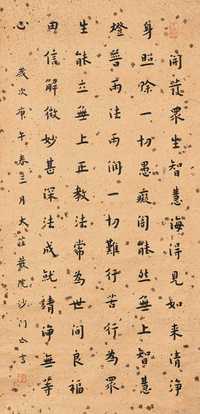 開發眾生智慧海得見如來清淨
身照除一切愚癡闇能然無上智慧
燈普雨法雨潤一切難行苦行為眾
生能立無上正教法常為世間良福
田信解微妙甚深法成就清淨無等
心 歲次庚午春三月大莊嚴院沙門亡言